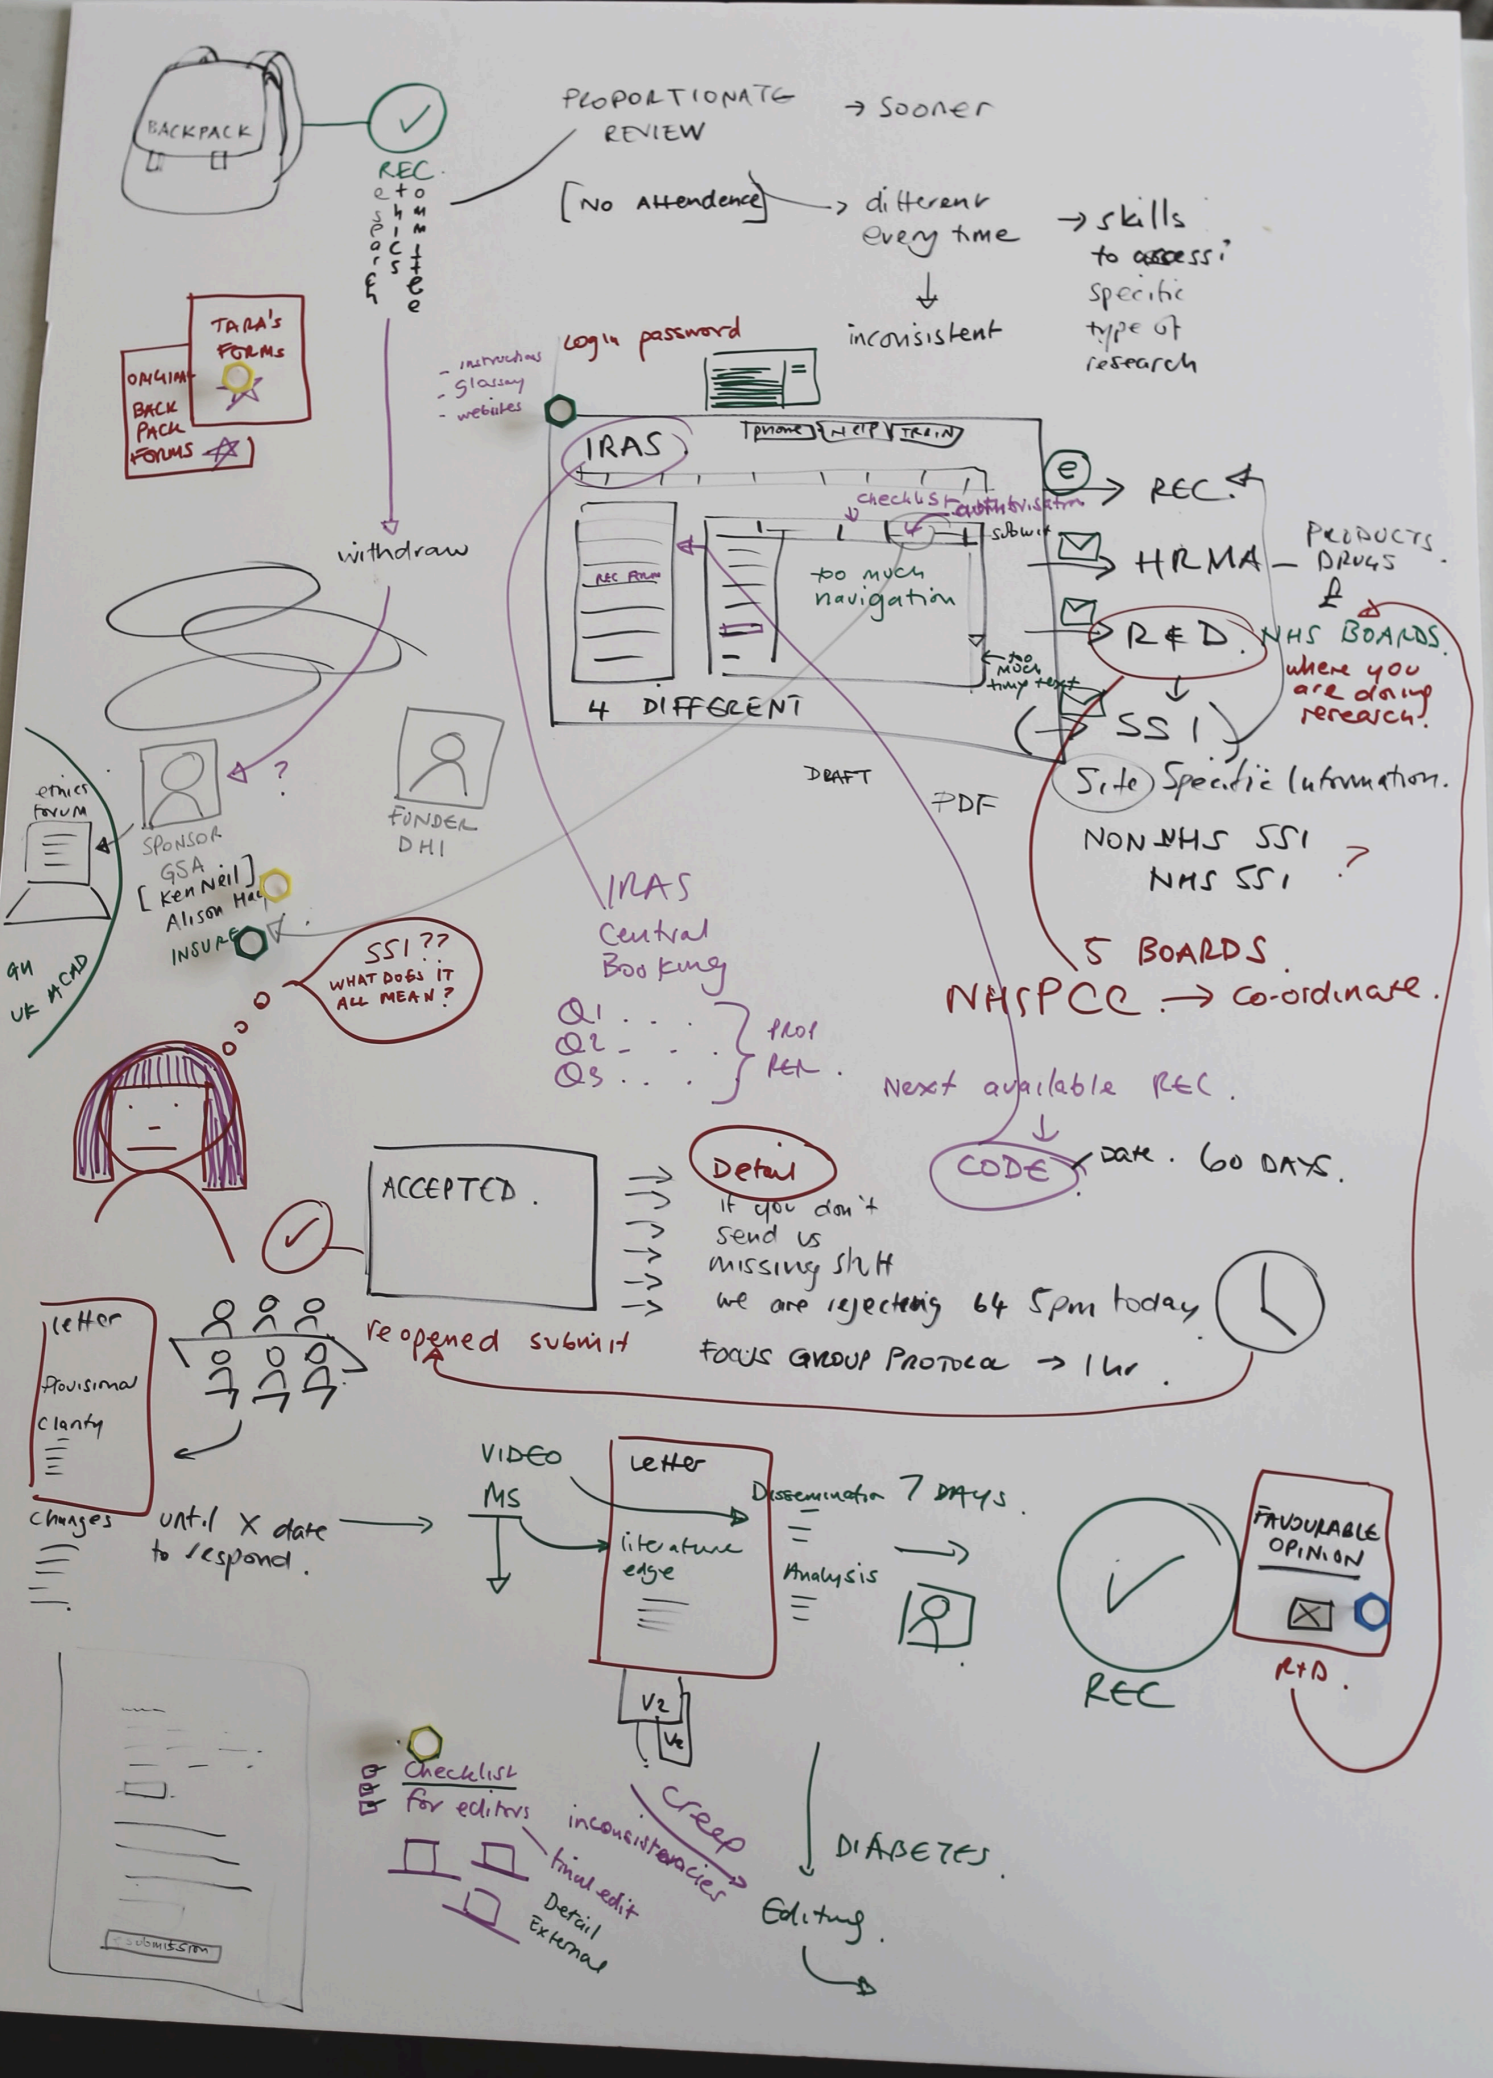 BACKPACK
REC.
research
ethics
committee
PROPORTIONATE
REVIEW
→ Sooner
[No Attendence]
→ different
every time
→ skills
to assess
specific
type of
research
inconsistent
TARA'S
FORMS
ORIGINAL
BACK
PACK
FORMS
Login password
- instructions
- glossary
- websites
IRAS
phone
HELP
TRAIN
checklist
authorisation
submit
REC FORM
too much
navigation
← too
much
tiny text
4 DIFFERENT
e
→ REC.
→ HRMA — PRODUCTS
DRUGS
£
R & D.
NHS BOARDS.
where you
are doing
research.
SSI
Site Specific Information.
NON NHS SSI
NHS SSI
?
withdraw
?
ethics
forum
SPONSOR
GSA
[Ken Neil]
Alison
INSURE
UK ACAD
FUNDER
DHI
DRAFT
PDF
SSI ??
WHAT DOES IT
ALL MEAN?
IRAS
Central
Booking
Q1 . . .
Q2 - . .
Q3 . . .
PROP
REV.
5 BOARDS
NHSPCC → co-ordinate.
Next available REC.
CODE
Date. 60 DAYS.
ACCEPTED.
Detail
if you don't
send us
missing stuff
we are rejecting b4 5pm today
FOCUS GROUP PROTOCOL → 1 hr.
reopened submit
Letter
Provisional
Clarity
changes
until X date
to respond.
VIDEO
MS
Letter
literature
edge
Dissemination 7 DAYS.
Analysis
V2
V2
REC
FAVOURABLE
OPINION
R+D.
Checklist
for editors
final edit
Detail
External
inconsistencies
creep
DIABETES.
Editing.
submission